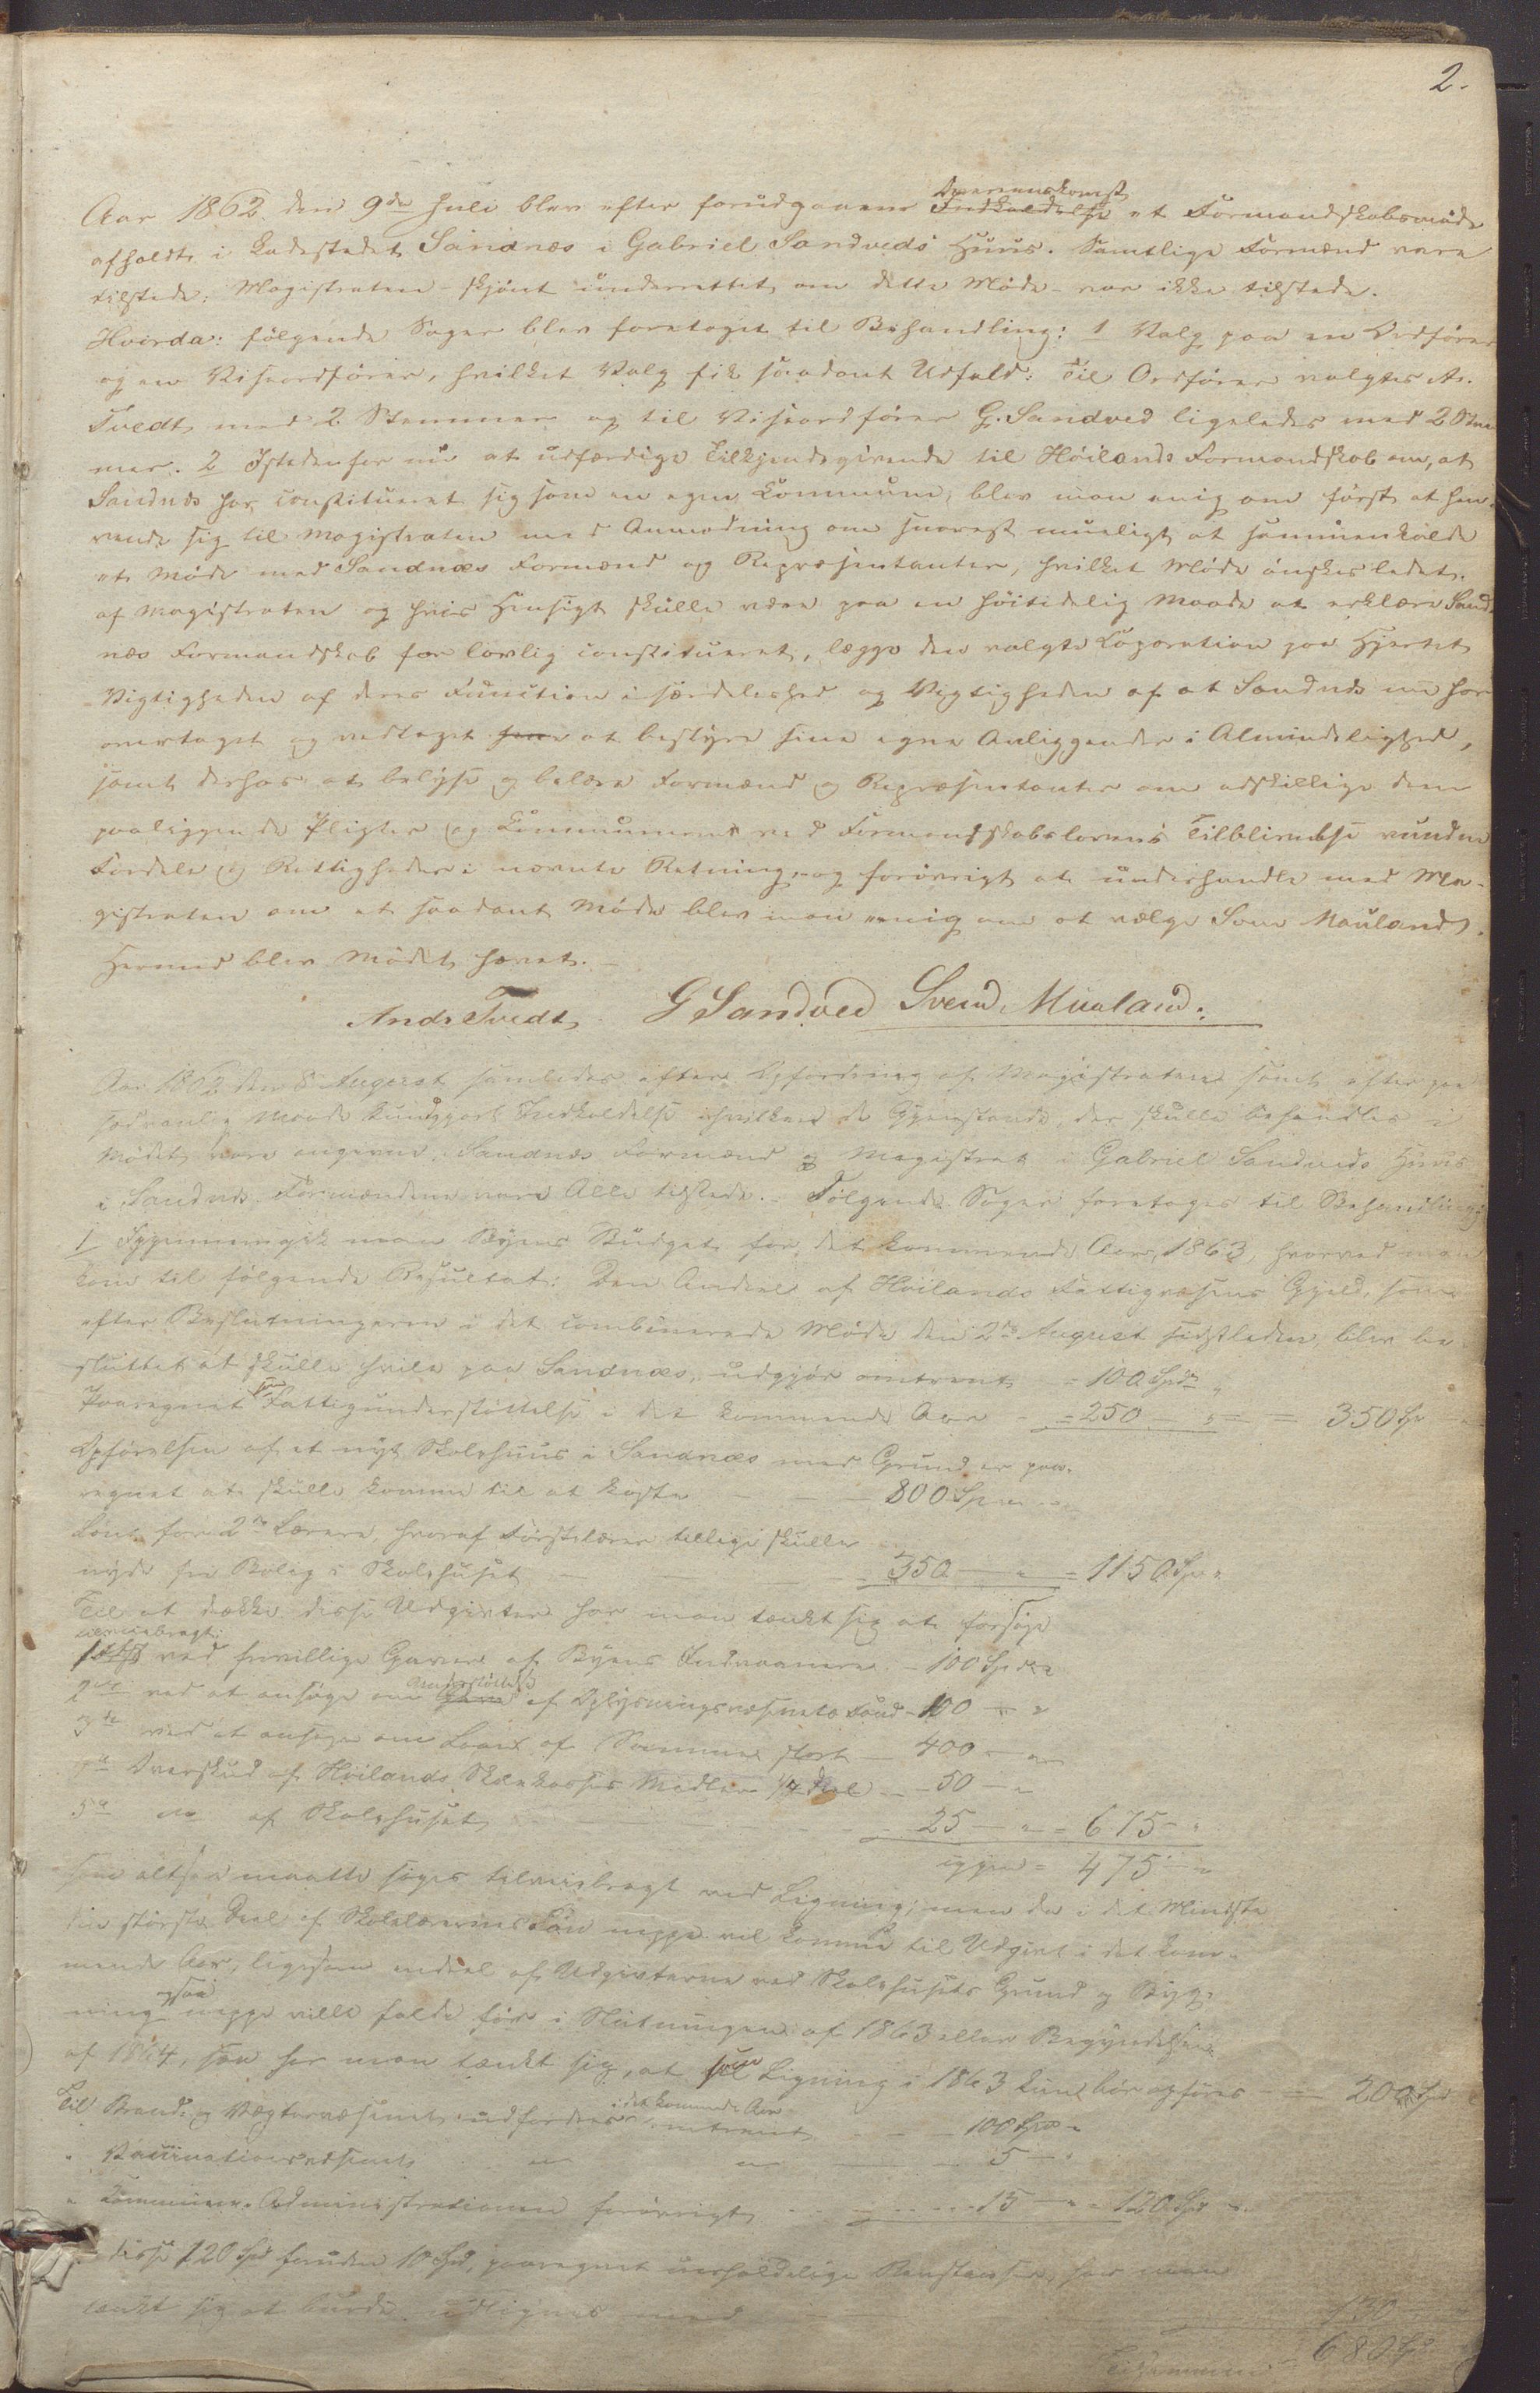 2.
Aar 1862 den 9de Juli blev efter forudgaaen Overenskomst Indkaldelse et Formandskabsmöde
afholdt i Ladestedet Sandnæs i Gabriel Sandveds Huus. Samtlige Formænd vare
tilstede; Magistraten - skjönt underrettet om dette Möde - var ikke tilstede.
Hvorda: fölgende Sager blev foretaget til Behandling: 1 Valg paa en Ordförer
og en Viseordförer, hvilket Valg fik saadant Udfald: Til Ordförer valgtes A.
Tvedt med 2 Stemmer og til Viseordförer G. Sandved ligeledes med 2 Stem
mer. 2 Istedenfor nu at udfærdige Tilkjendegivende til Höilands Formandskab om, at
Sandnæs har constitueret sig som en egen Commune, blev man enig om först at hen-
vende sig til Magistraten med Anmodning om snarest mueligt at sammenkalde
et Möde med Sandnæs Formænd og Repræsentanter, hvilket Möde önskes ledet
af Magistraten og hvis Hensigt skulle være paa en höitidelig Maade at erklære Sand-
næs Formandskab for lovlig constitueret, lægge den valgte Coporation paa Hjertet
Vigtigheden af deres Function i særdeleshed og Vigtigheden af at Sandnæs nu har
overtaget og vedtaget at bestyre sine egne Anliggender i Almindelighed,
samt derhos at belyse og belære Formænd og Repræsentanter om adskillige dem
paaliggende Pligter og Communens ved Formandskabslovens Tilblivelse vundne
Fordele og Rettigheder i nævnte Retning, og forövrigt at underhandle med Ma-
gistraten om et saadant Möde blev man enig om at vælge Svend Mauland.
Hermed blev Mödet hævet.
Ands Tvedt G Sandved Svend Mauland.
Aar 1862 den 8 August samledes efter Opfordring af Magistraten samt efter paa
sædvanlig Maade kundgjort Indkaldelse i hvilken de Gjenstande, der skulle behandles i
Mödet vare angivne, Sandnæs Formænd og Magistrat i Gabriel Sandveds Huus
i Sandnæs. Formændene vare Alle tilstede. Fölgende Sager foretoges til Behandling:
1 Igjennemgik man Byens Budget for det kommende Aar, 1863, hvorved man
kom til fölgende Resultat: Den Andeel af Höilands Fattigvæsens Gjeld, som
efter Beslutningerne i det combinerede Möde den 2de August sidstleden, blev be-
sluttet at skulle hvile paa Sandnæs, udgjör omtrent = 100 Spd
Paaregnet Fattigunderstöttelse i det kommende Aar - = 250 - " = = 350 Sp
Opförelsen af et nyt Skolehuus i Sandnæs med Grund er paa-
regnet at skulle komme til at koste - - - 800 Spd
Lönt for 2de Lærere, hvoraf Förstelærer tillige skulle
nyde fri Bolig i Skolehuset - - - 350 - " = 1150 Spd
Til at dække disse Udgivter har man tænkt sig at forsöge
tilveiebragt:
1st ved frivillige Gaver af Byens Indvaanere - 100 Spd
2det ved at ansöge om Understöttelse af Oplysningsvæsenets Fond - 100 - "
3de ved at ansöge om Laan af Samme stort - 400 - "
4de Overskud af Höilands Skolekasses Midler 1/4 Deel - 50 - "
5te do af Skolehuset - 25 - " = 675 - "
igjen = 475 - "
som altsaa maatte söges tilveiebragt ved Ligning; men da i det Mindste
den störste Deel af Skolelærernes Lön neppe vil komme til Udgivt i det kom-
mende Aar, ligesom endeel af Udgivterne ved Skolehusets Grund og Byg-
ning ogsaa neppe ville falde för i Slutningen af 1863 eller Begyndelsen
af 1864, saa har man tænkt sig, at som Ligning i 1863 kun bör opföres - = 200 Spd
Til Brand- og Vægtervæsenet udfordres i det kommende Aar omtrent - - 100 Spd "
" Vaccinationsvæsenet " " - 5 - "
" Commune-Administrationen forövrigt - - - 15 - " = 120 Spd
disse 120 Spd foruden 10 Spd, paaregnet uerholdelige Restanser, har man
tænkt sig at burde udlignes med 130
Tilsammen 680 Spd